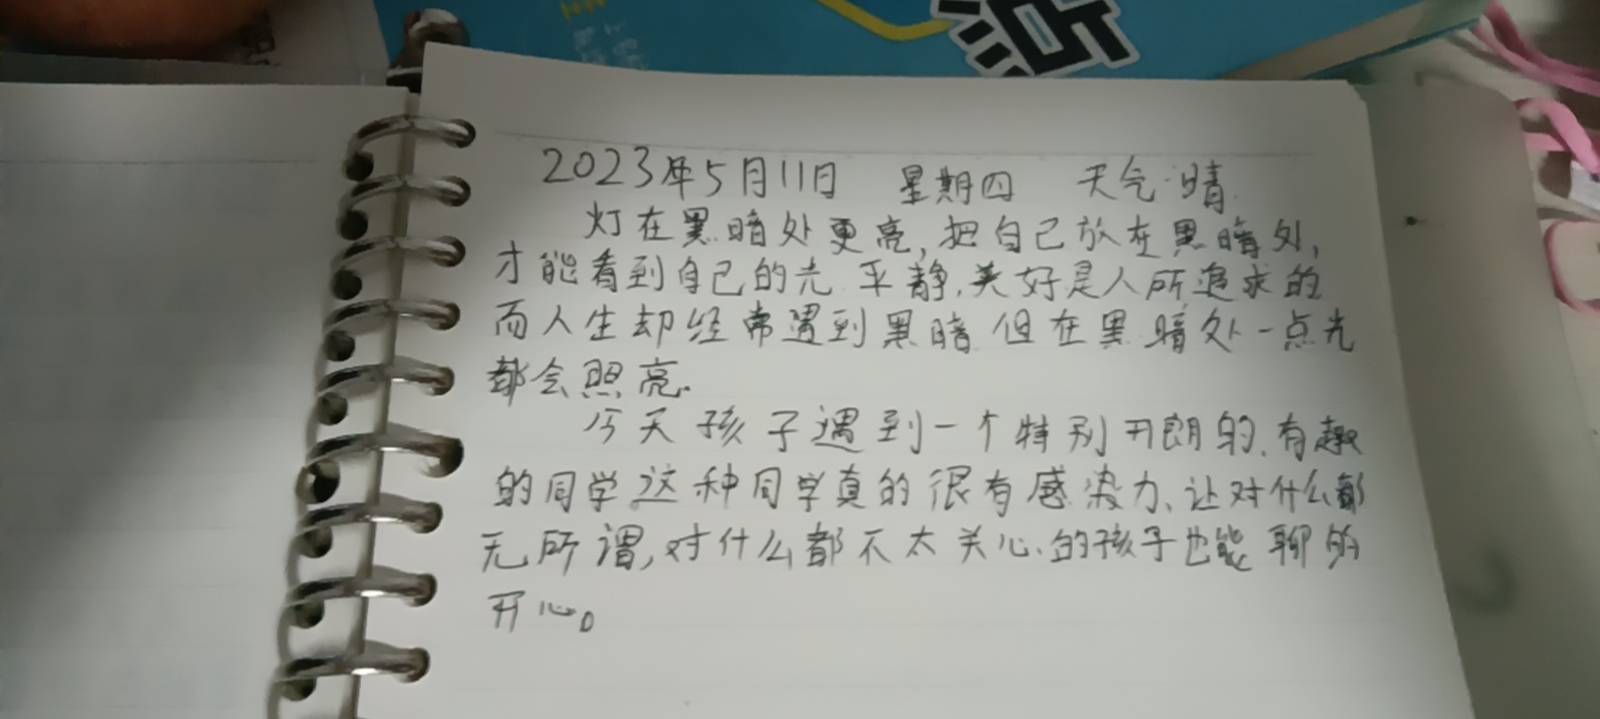 点
2023年5月11日 星期四 天气:晴.
灯在黑暗处更亮,把自己放在黑暗处,
才能看到自己的光.平静.美好是人所追求的
而人生却经常遇到黑暗.但在黑暗处一点光
都会照亮.
今天孩子遇到一个特别开朗的.有趣
的同学.这种同学真的很有感染力、让对什么都
无所谓,对什么都不太关心.的孩子也能聊的
开心。